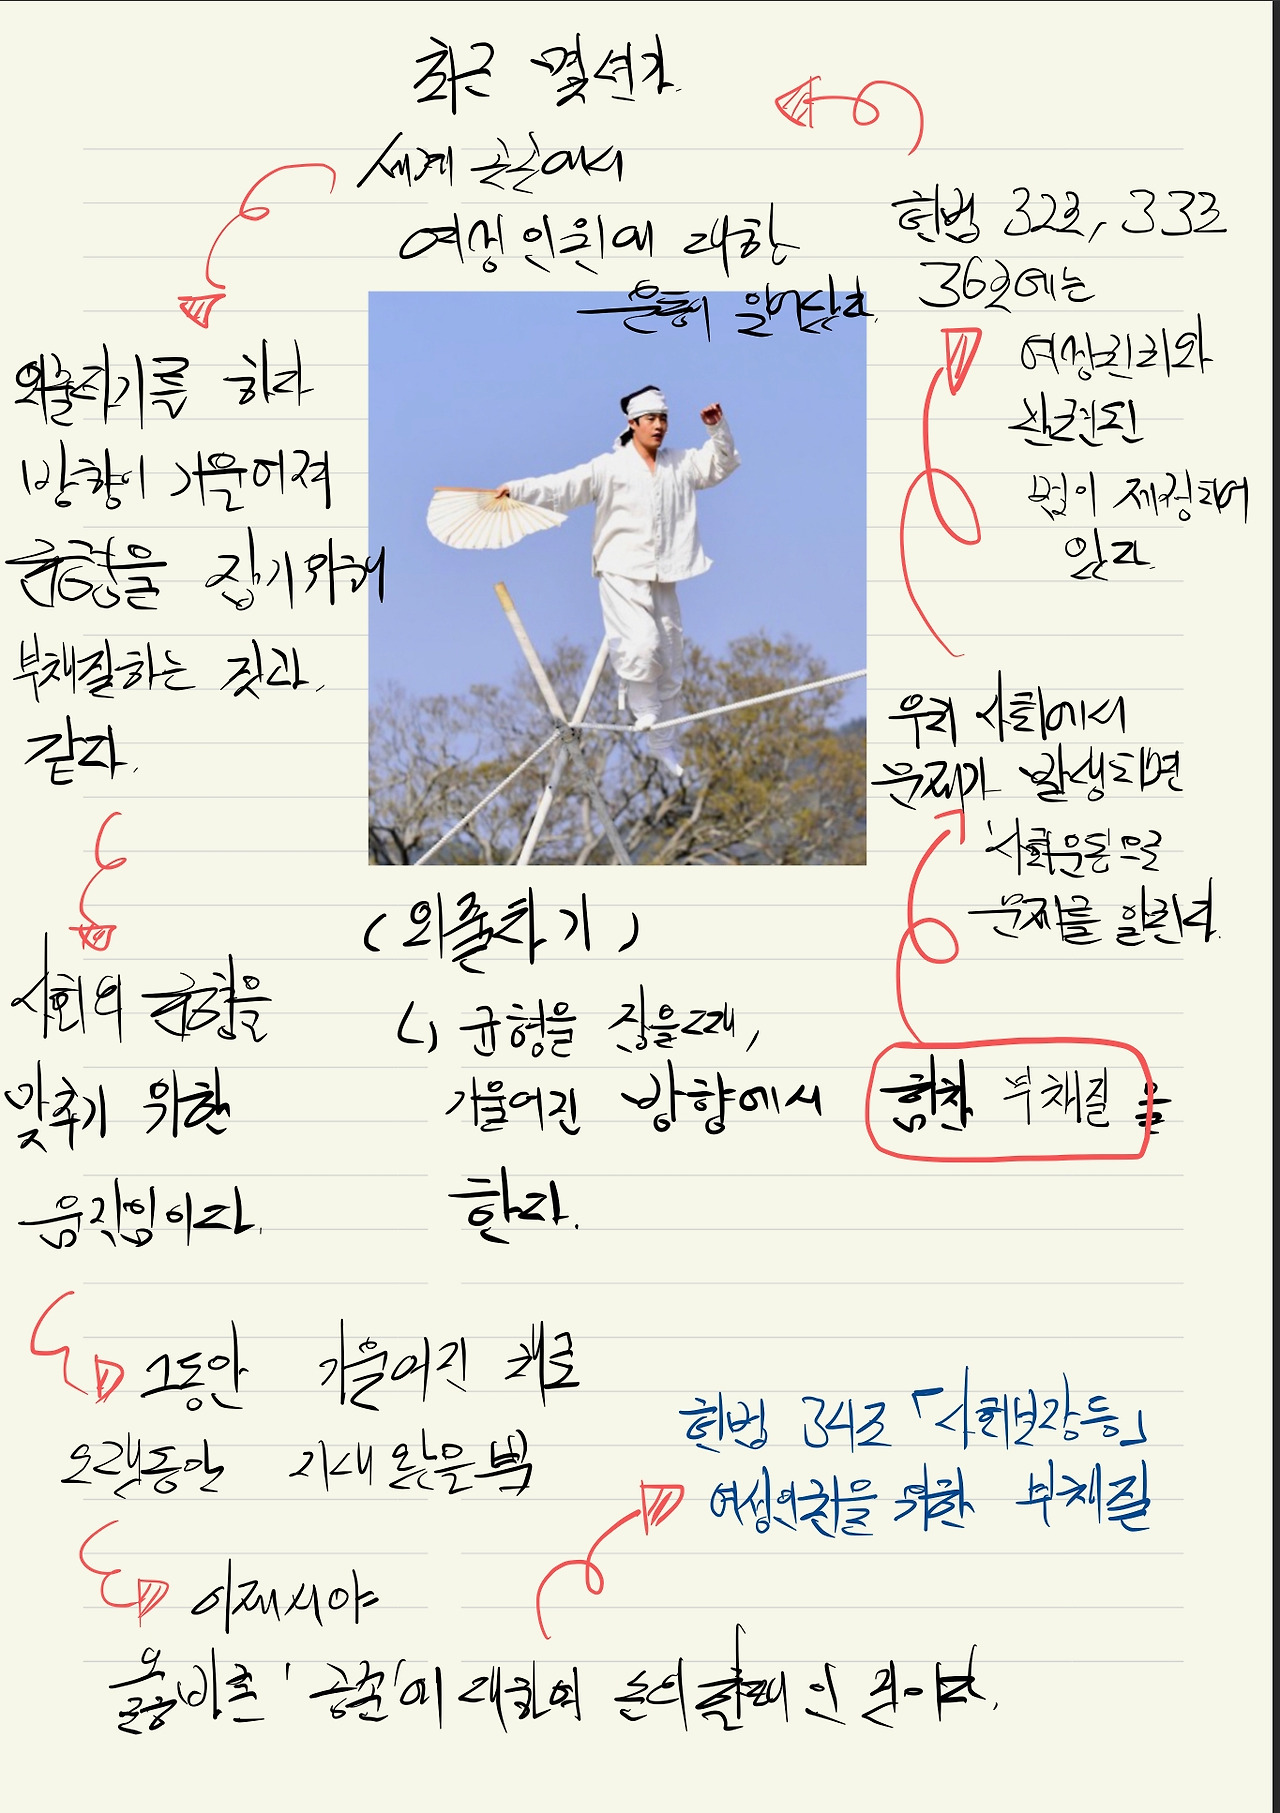 최근 몇년간
세계 곳곳에서
여성 인권에 대한
운동이 일어났다.
외줄타기를 하다
방향이 기울어져
균형을 잡기위해
부채질하는 것과
같다.
사회의 균형을
맞추기 위한
움직임이다.
(외줄타기)
균형을 잡을때,
기울어진 방향에서 힘찬 부채질을
한다.
우리 사회에서
문제가 발생되면
사회운동으로
문제를 알린다.
헌법 32조, 33조
36조에는
여성권리와
관련된
법이 제정되어
있다.
그동안 기울어진 채로
오랫동안 지내왔을뿐
이제서야
올바른 '공존'에 대하여 논의할때인 것이다.
헌법 34조 「사회보장등」
여성인권을 위한 부채질